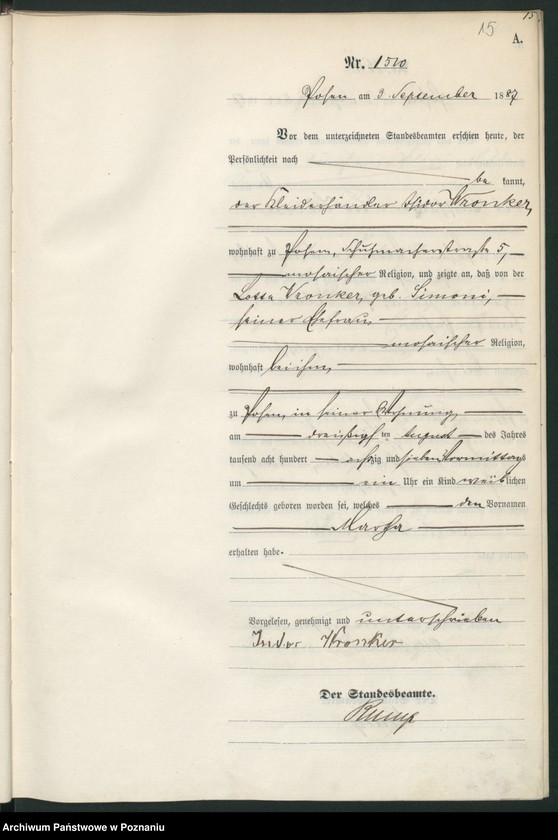 15.
15
A.
Nr. 1510
Posen am 3 September 1887
Vor dem unterzeichneten Standesbeamten erschien heute, der
Persönlichkeit nach
be kannt,
der Kleiderhändler Isidor Wronker,
wohnhaft zu Posen, Schuhmacherstraße 5,
mosaischer Religion, und zeigte an, daß von der
Wronker, geb. Simoni,
seiner Ehefrau
mosaischer Religion,
wohnhaft bei ihm,
zu Posen, in seiner Wohnung,
am dreißig ten August des Jahres
tausend acht hundert achtzig und sieben Vormittags
um ein Uhr ein Kind weiblichen
Geschlechts geboren worden sei, welches den Vornamen
Martha
erhalten habe.
Vorgelesen, genehmigt und unterschrieben
Isidor Wronker
Der Standesbeamte.
Archiwum Państwowe w Poznaniu